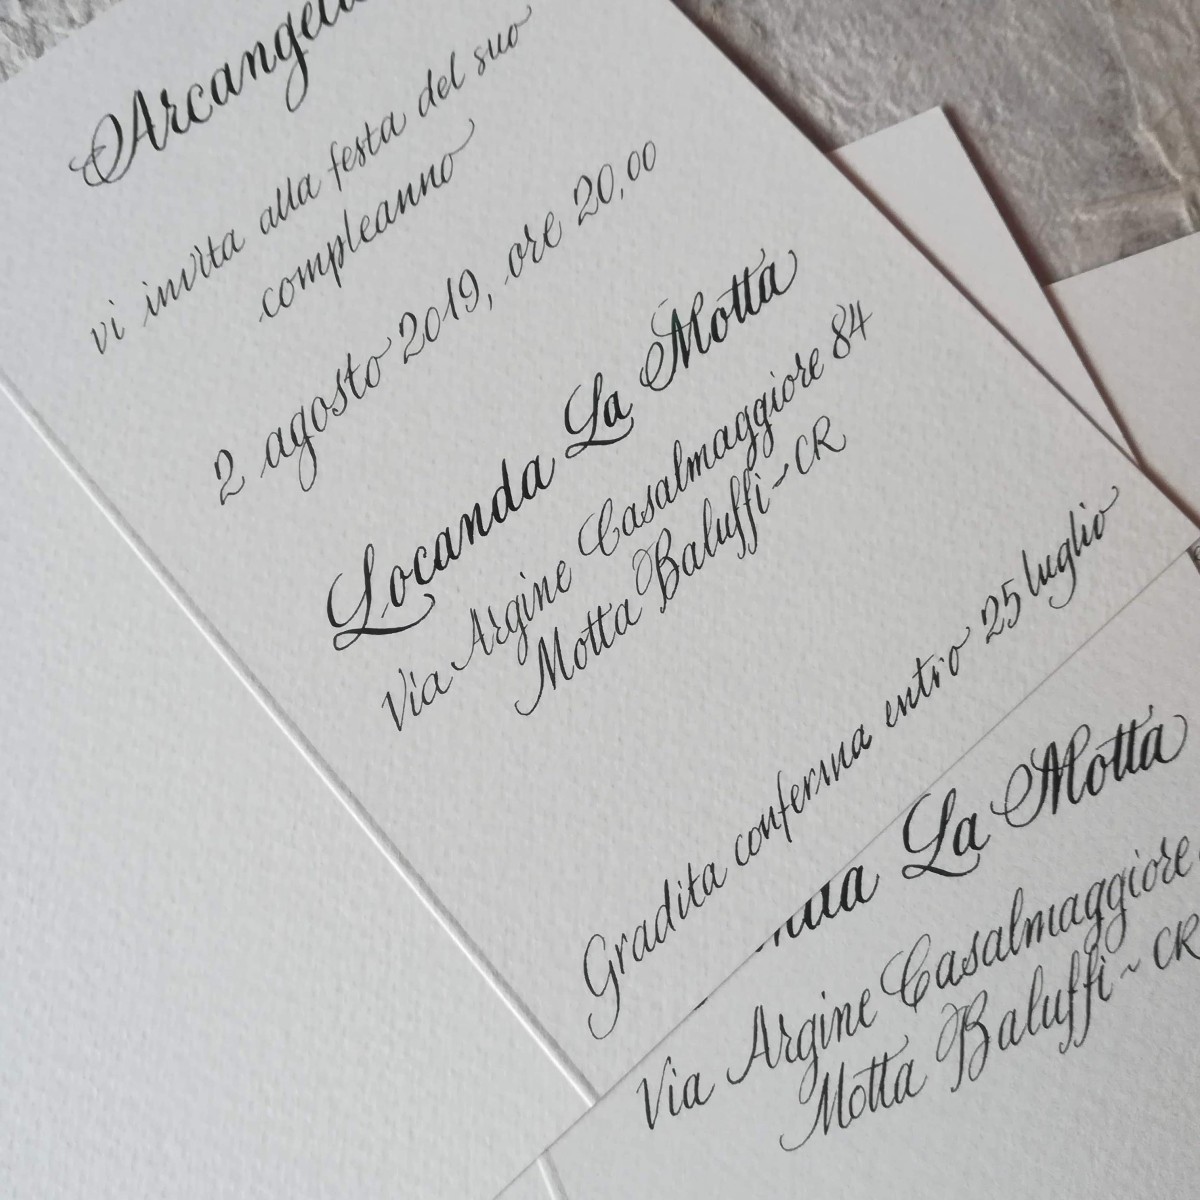 vi invita alla festa del suo
compleanno
2 agosto 2019, ore 20,00
Locanda La Motta
Via Argine Casalmaggiore 84
Motta Baluffi ~ CR
Gradita conferma entro 25 luglio
La Motta
Via Argine Casalmaggiore
Motta Baluffi ~ CR